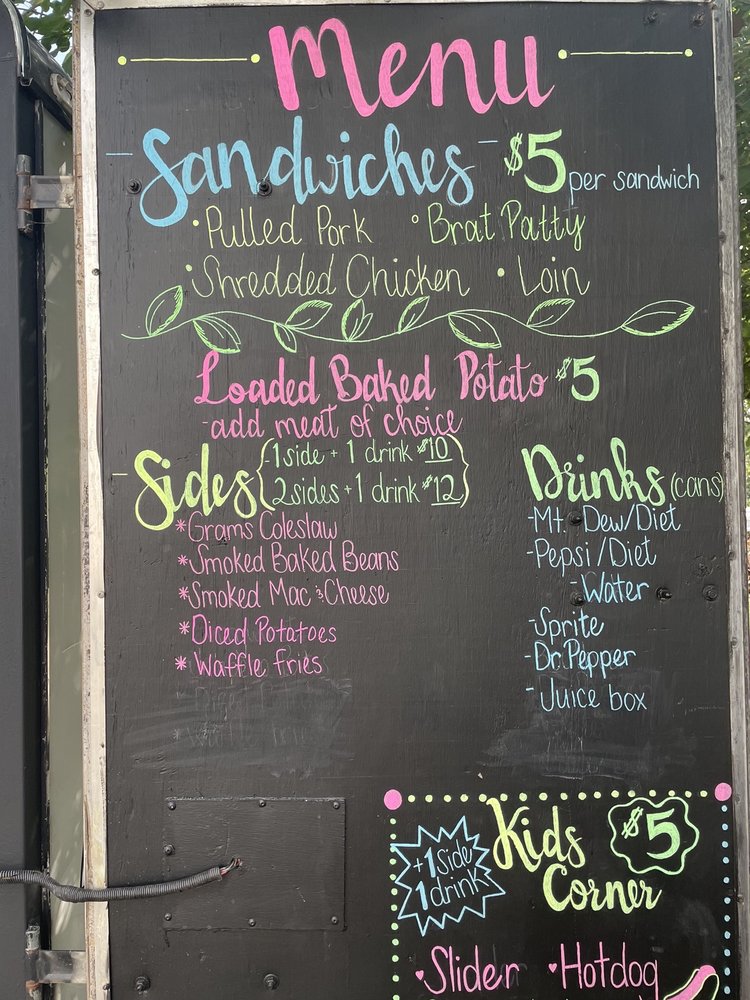 Menu
Sandwiches - $5 per sandwich
• Pulled Pork • Brat Patty
• Shredded Chicken • Loin
Loaded Baked Potato $5
-add meat of choice
Sides
1 side + 1 drink $10
2 sides + 1 drink $12
*Grams Coleslaw
*Smoked Baked Beans
*Smoked Mac & Cheese
*Diced Potatoes
*Waffle Fries
Drinks (cans)
-Mt. Dew/Diet
-Pepsi/Diet
-Water
-Sprite
-Dr. Pepper
-Juice box
Kids
Corner
$5
+1 Side
1 drink
♥Slider ♥Hotdog